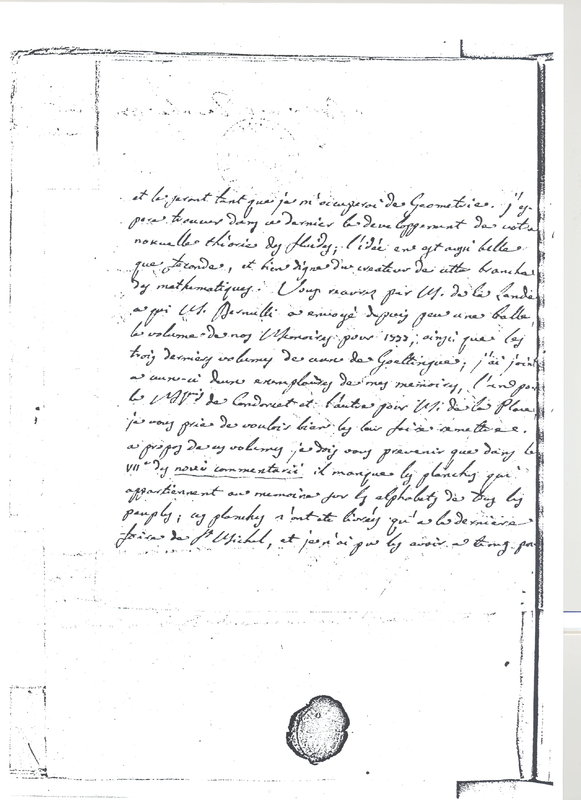 et le seront tant que je m'occuperai de Geometrie. J'es-
pere trouver dans ce dernier le developpement de votre
nouvelle théorie des fluides; l'idée en est aussi belle
que feconde, et bien digne du createur de cette branche
des mathematiques. Vous recevrez par M. de la Lande
a qui M. Bernulli a envoyé depuis peu une balle,
le volume de nos Memoires pour 1777, ainsi que les
trois derniers volumes de ceux de Goettingue; j'ai joint
a ceux-ci deux exemplaires de mes memoires, l'un pour
le Mis de Condorcet et l'autre pour M. de la Place,
je vous prie de vouloir bien les leur faire remettre.
a propos de ces volumes je dois vous prevenir que dans le
VIIe des novi commentarii il manque les planches qui
appartiennent au memoire sur les alphabets de tous les
peuples; ces planches n'ont été livrées qu'a la derniere
foire de St Michel, et je n'ai pu les avoir a tems por